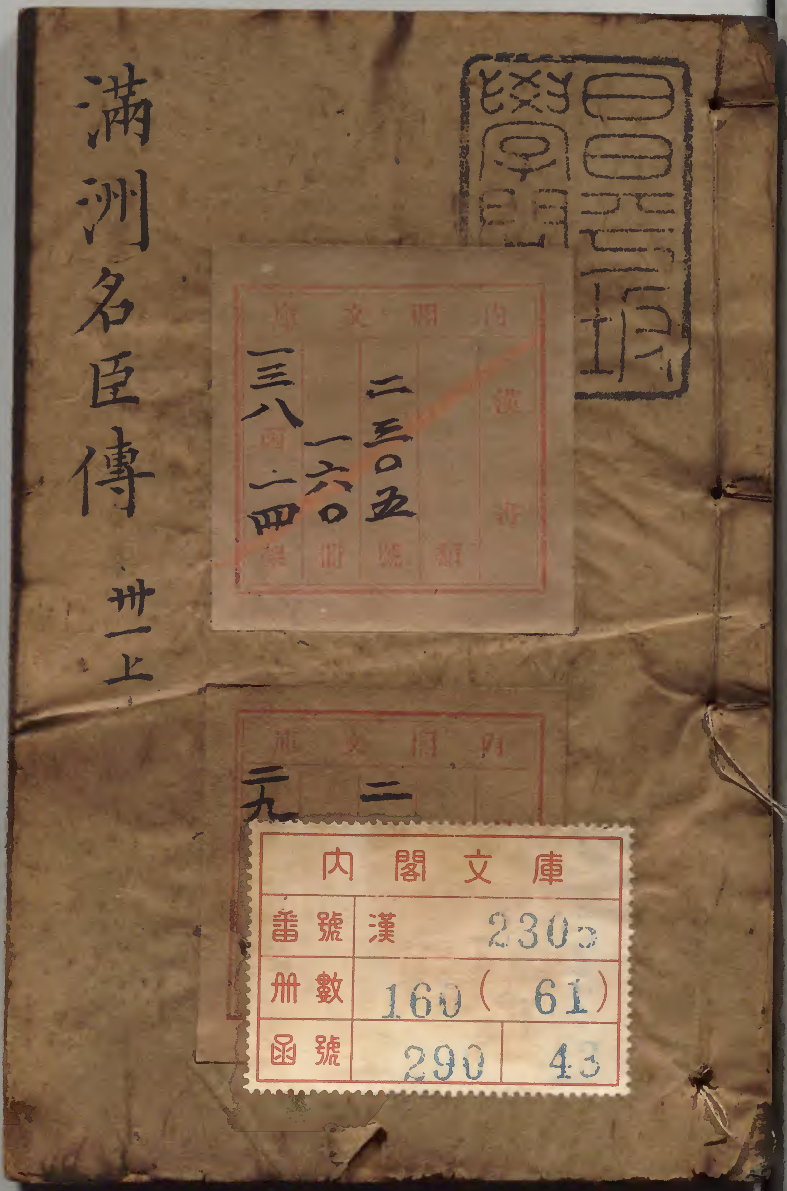 滿洲名臣傳 卅一上
昌平坂
學問
内閣文庫
漢書
類
二三〇五號
一六〇冊
一三八函
一四架
内閣文庫
二
二九
内閣文庫
番號 漢 2305
冊數 160 (61)
函號 290 43